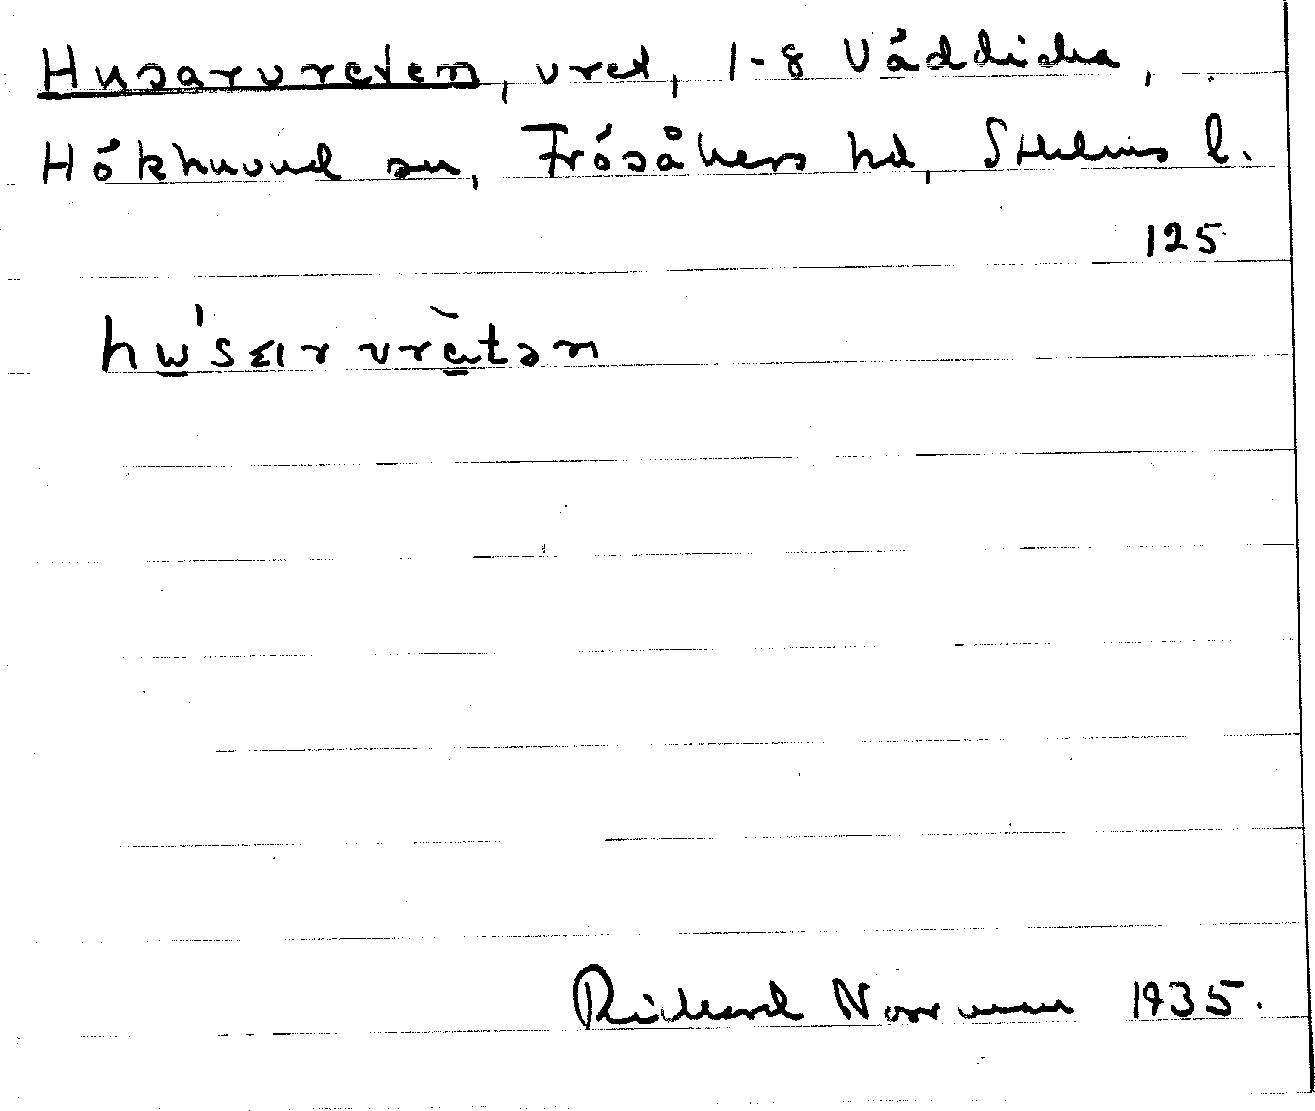 Husarvreten, vret, 1-8 Väddika,
Hökhuvud sn, Frösåkers hd, Sthlms l.
125
hu̲'sar vrè̲tən
Richard Norrman 1935.